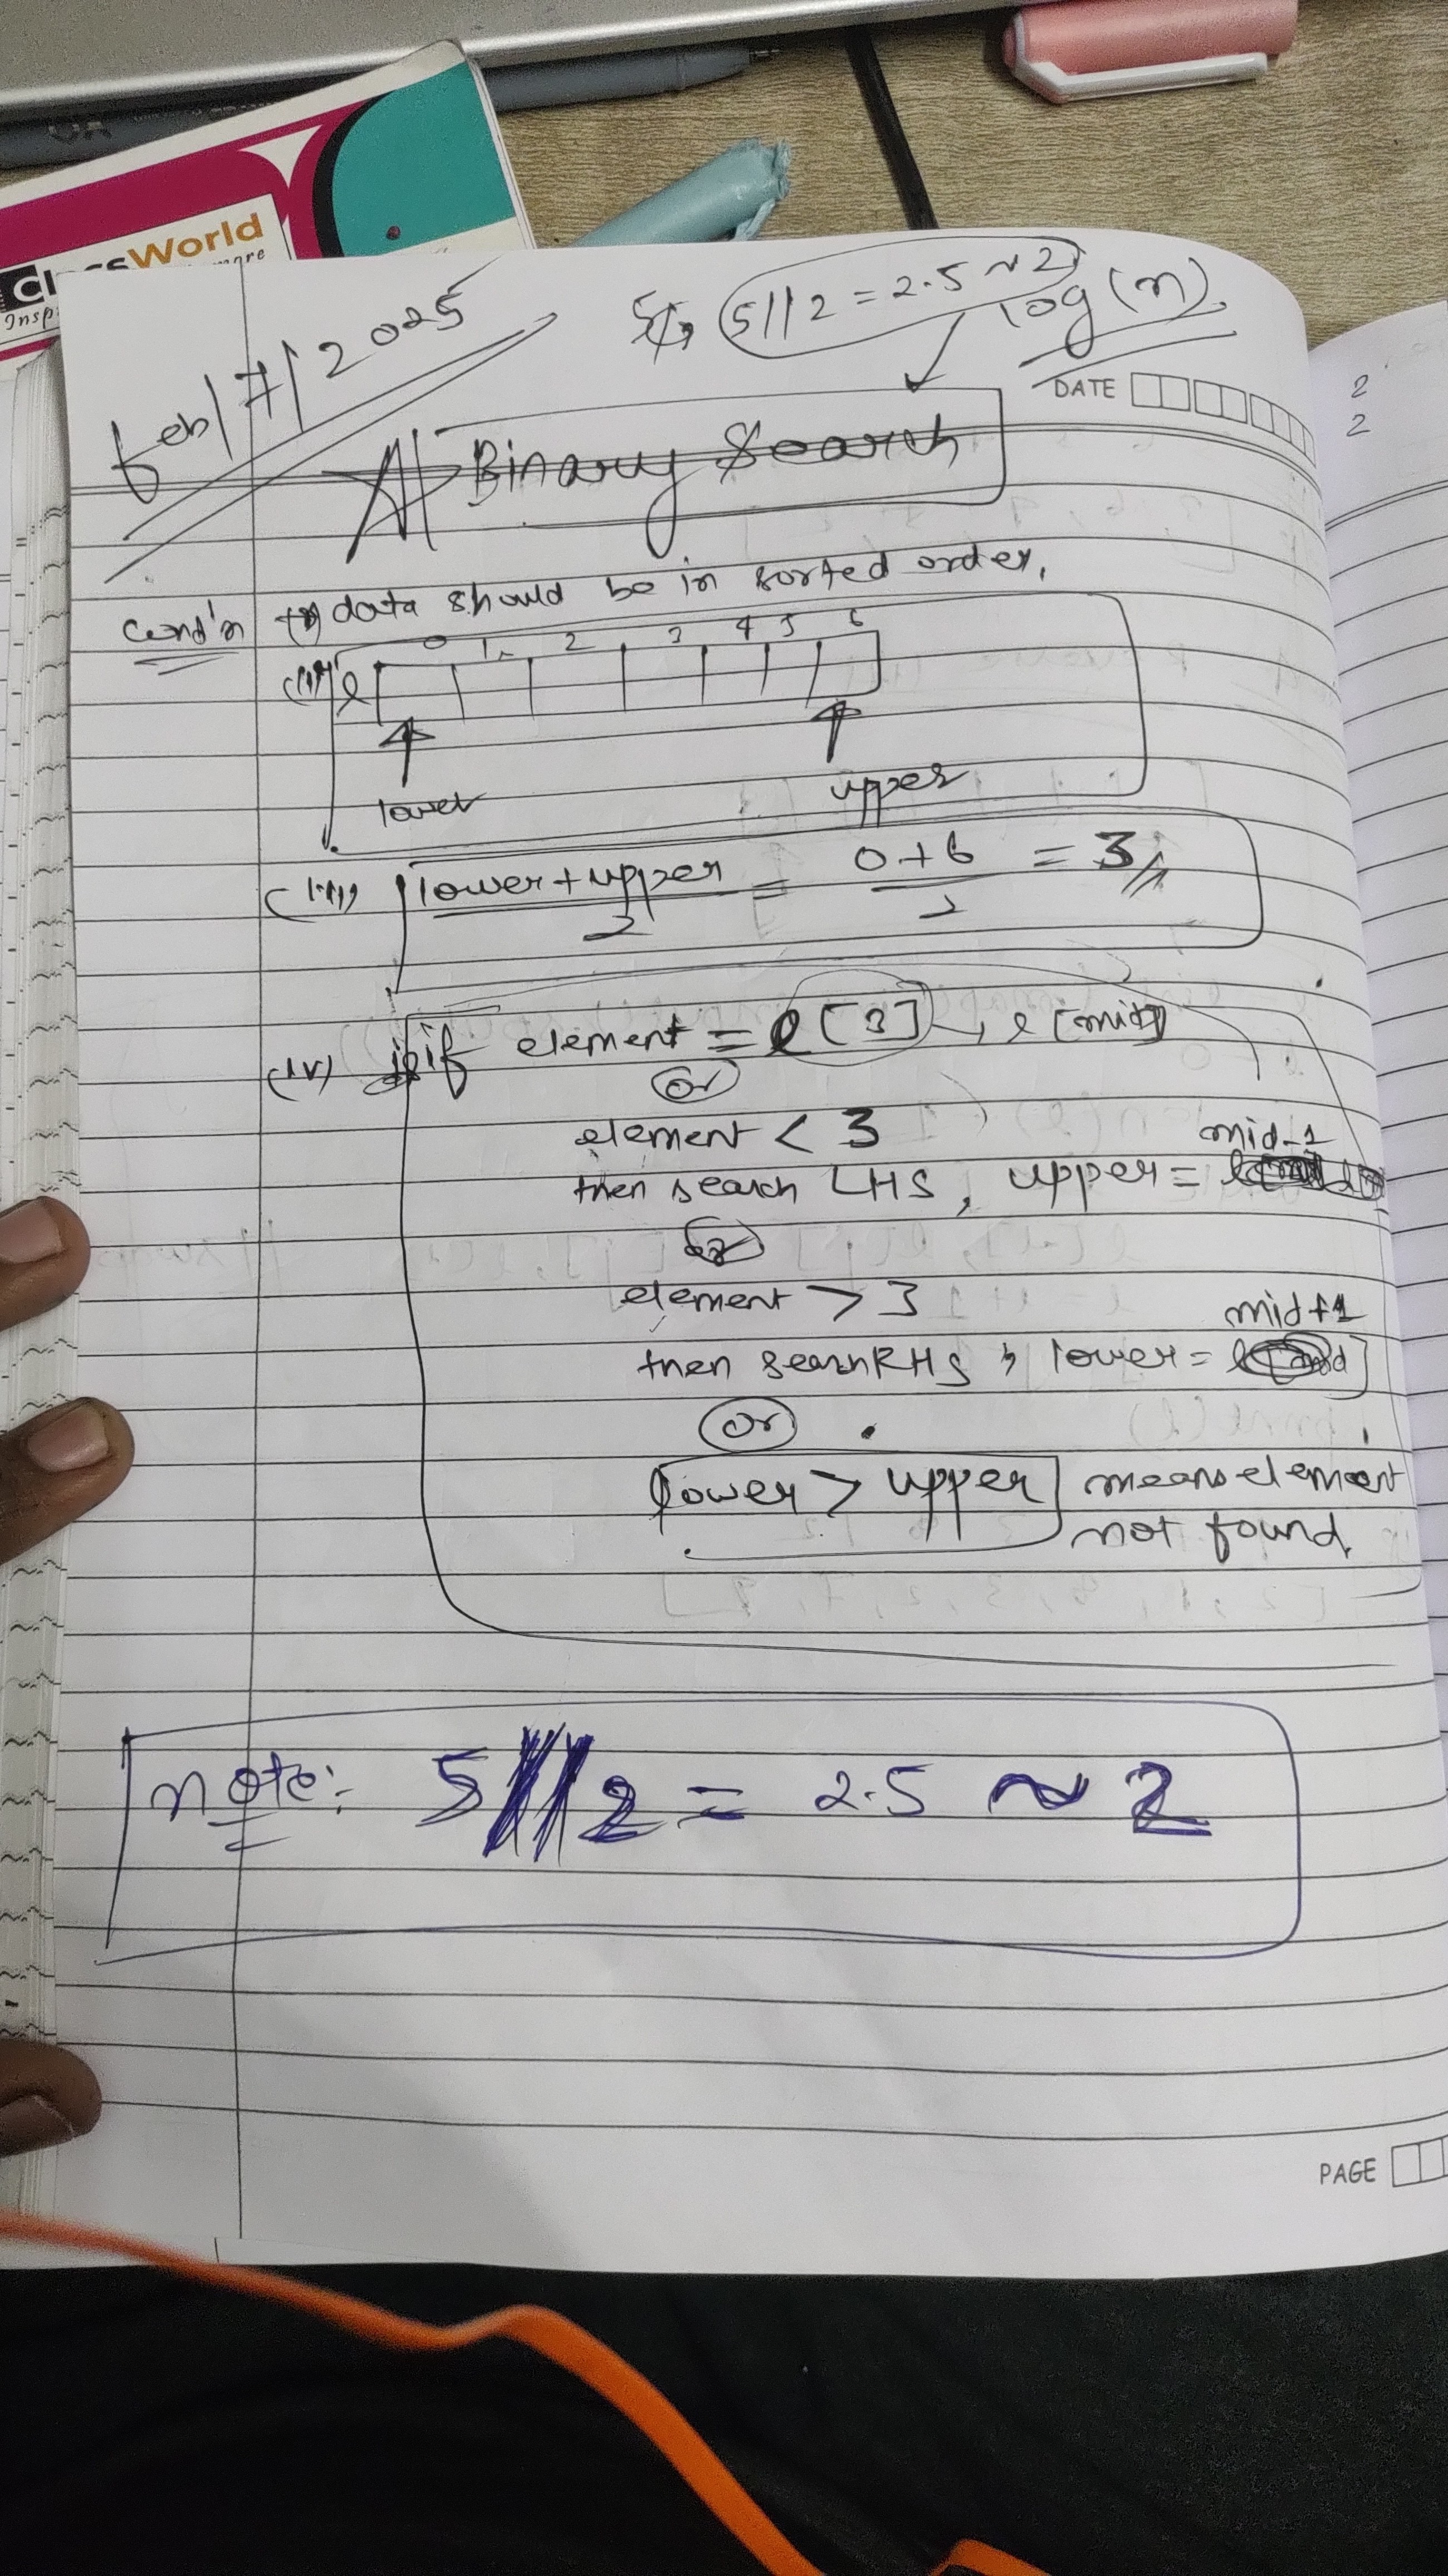 ClassWorld
more
Insp
Feb/7/2025
5//2 = 2.5 ~ 2
log(n)
DATE
2
2
A| Binary Search
Cond'n (i) data should be in sorted order,
0 1 2 3 4 5 6
(ii) l
lower upper
(iii) lower+upper/2 = 0+6/2 = 3
(iv) if element = l[3] → l[mid]
or
element < 3
mid-1
then search LHS, upper =
or
element > 3
mid+1
then search RHS, lower =
or
lower > upper means element
not found
note: 5//2 = 2.5 ~ 2
PAGE